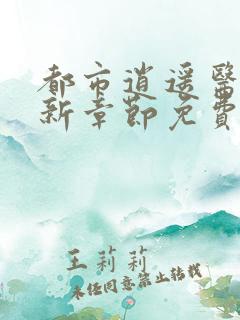 都市逍遥醫
新章節免費
王莉莉
未经同意禁止转载